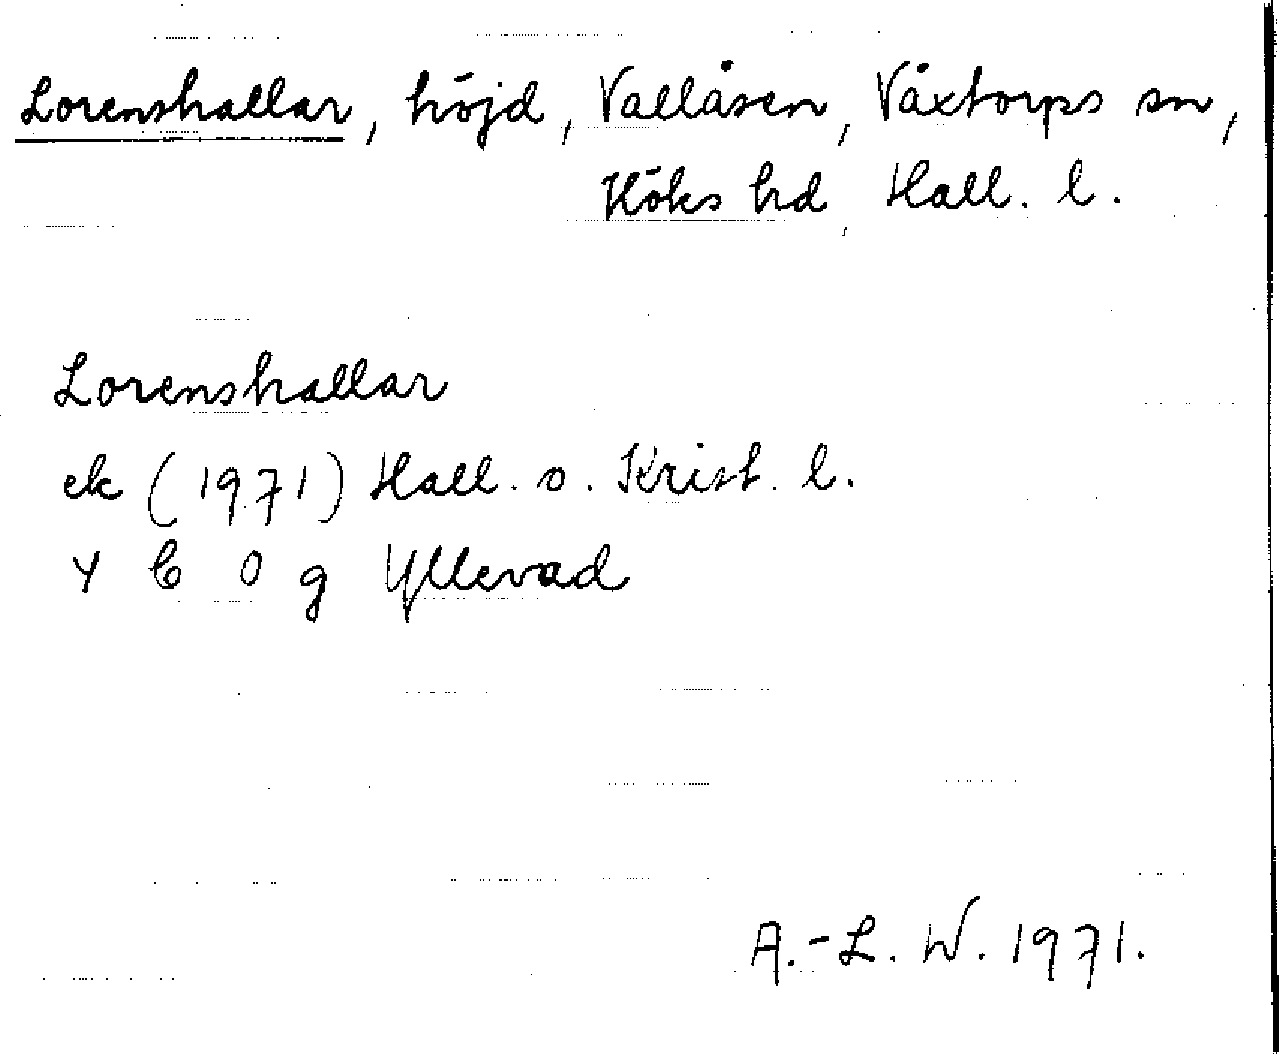 Lorenshallar, höjd, Vallåsen, Våxtorps sn,
Höks hd, Hall. l.
Lorenshallar
ek (1971) Hall. o. Krist. l.
Y C O g Yllevad
A.-L. W. 1971.